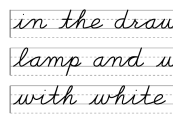 in the draw
lamp and w
with white